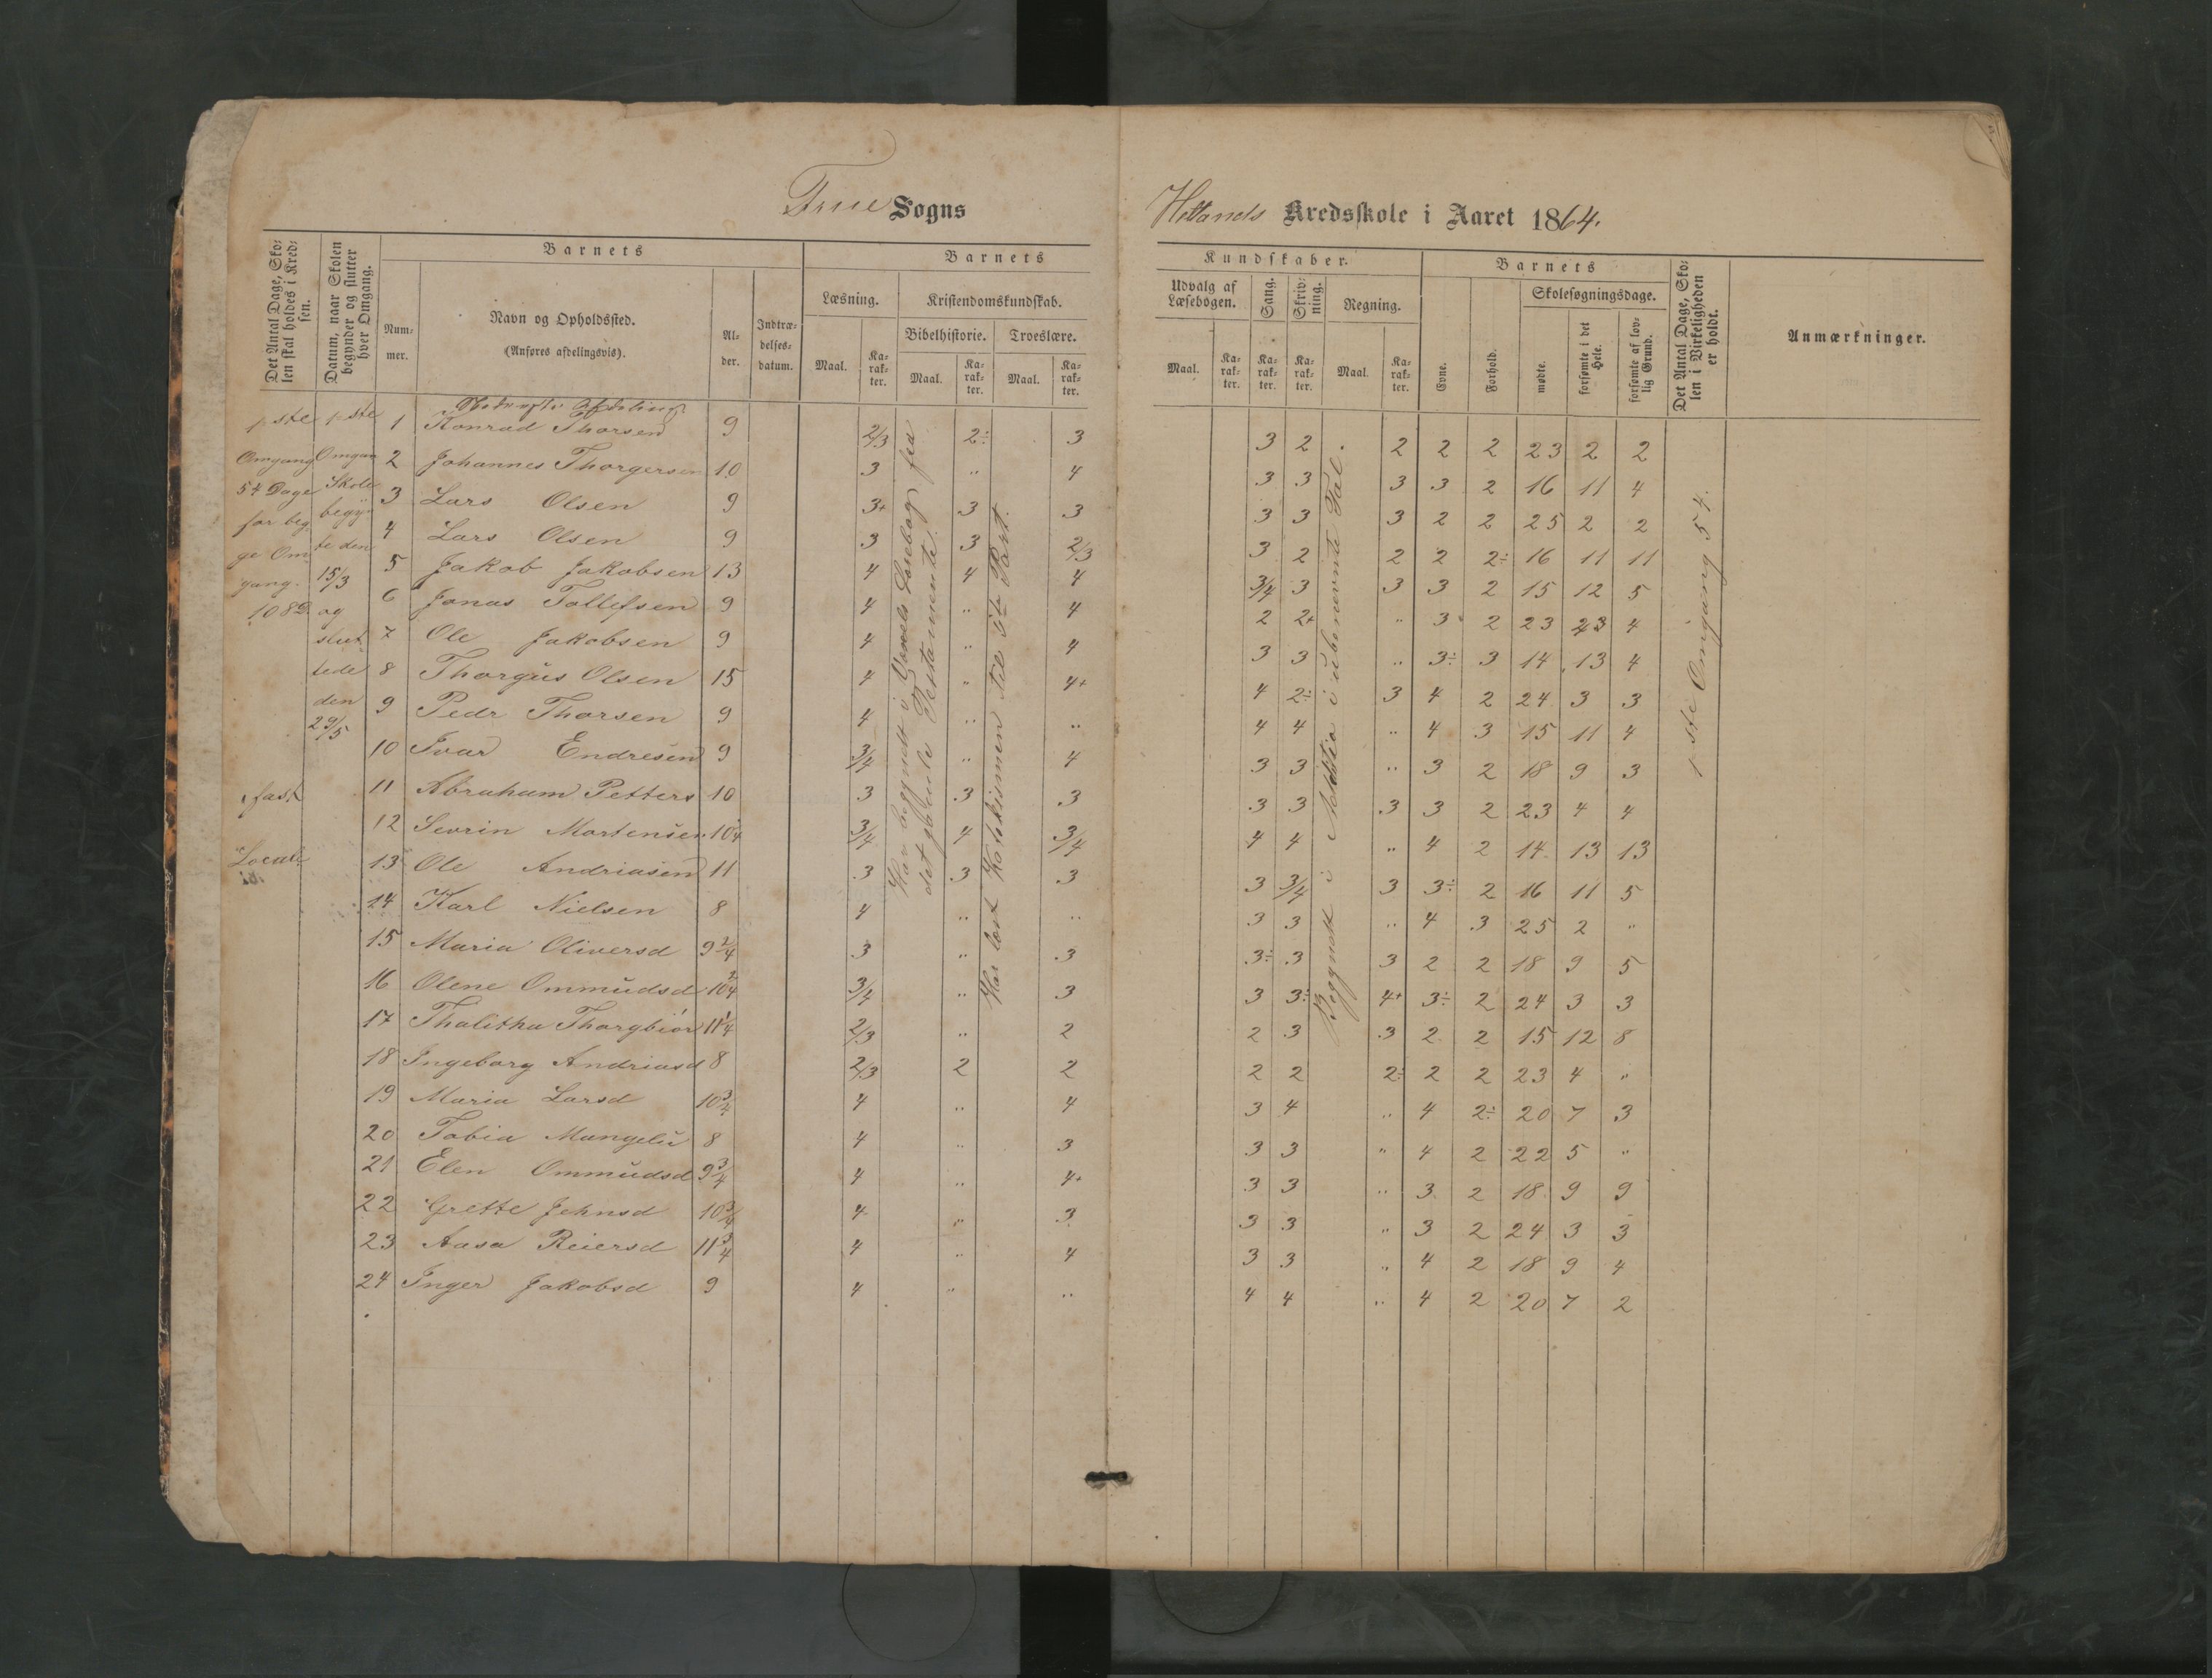 Frue Sogns
Hetlands Kredsskole i Aaret 1864.
Det Antal Dage, Sko-
len skal holdes i Kred-
sen.
Datum, naar Skolen
begynder og slutter
hver Omgang.
Barnets
Num-
mer.
Navn og Opholdssted.
(Anføres afdelingsvis).
Al-
der.
Indtræ-
delses-
datum.
Barnets
Læsning.
Maal.
Ka-
rak-
ter.
Kristendomskundskab.
Bibelhistorie.
Maal.
Ka-
rak-
ter.
Troeslære.
Maal.
Ka-
rak-
ter.
Kundskaber.
Udvalg af
Læsebogen.
Maal.
Ka-
rak-
ter.
Sang.
Ka-
rak-
ter.
Skriv-
ning.
Ka-
rak-
ter.
Regning.
Maal.
Ka-
rak-
ter.
Barnets
Evne.
Forhold.
Skolesøgningsdage.
mødte.
forsømte i det
Hele.
forsømte af lov-
lig Grund.
Det Antal Dage, Sko-
len i Virkeligheden
er holdt.
Anmærkninger.
1ste
Omgang
54 Dage
for beg
ge Om
gang.
108 D.
fast
Locale
1ste
Omgan
Skole
begy
te den
15/3
og
slut
tede
den
29/5
Nederste Afdeling
1 Konrad Thorsen 9 2/3 2÷ 3 3 2 2 2 2 23 2 2
2 Johannes Thorgersen 10 3 „ 4 3 3 3 3 2 16 11 4
3 Lars Olsen 9 3+ 3 3 3 3 3 2 2 25 2 2
4 Lars Olsen 9 3 3 2/3 3 2 2 2 2÷ 16 11 11
5 Jakob Jakobsen 13 4 4 4 3/4 3 3 3 2 15 12 5
6 Jonas Tollefsen 9 4 „ 4 2 2+ „ 3 2 23 4
7 Ole Jakobsen 9 4 „ 4 3 3 „ 3÷ 3 14 13 4
8 Thorgus Olsen 15 4 „ 4+ 4 2÷ 3 4 2 24 3 3
9 Pedr Thorsen 9 4 „ „ 4 4 „ 4 3 15 11 4
10 Ivar Endresen 9 3/4 „ 4 3 3 „ 3 2 18 9 3
11 Abraham Petters 10 3 3 3 3 3 3 3 2 23 4 4
12 Sevrin Mortensen 10 1/4 3/4 4 3/4 4 4 „ 4 2 14 13 13
13 Ole Andriasen 11 3 3 3 3 3/4 3 3÷ 2 16 11 5
14 Karl Nielsen 8 4 „ „ 3 3 „ 4 3 25 2 „
15 Maria Oliversd 9 2/4 3 „ 3 3÷ 3 3 2 2 18 9 5
16 Olene Ommŭdsd 10 2/4 3/4 „ 3 3 3÷ 4+ 3÷ 2 24 3 3
17 Thalitha Thorgbiör 11 1/4 2/3 „ 2 2 3 3 2 2 15 12 8
18 Ingeborg Andriasd 8 2/3 2 2 2 2 2÷ 2 2 23 4 „
19 Maria Larsd 10 3/4 4 „ 4 3 4 „ 4 2÷ 20 7 3
20 Tobia Mangelŭ 8 4 „ 3 3 3 „ 4 2 22 5 „
21 Elen Ommŭdsd 9 3/4 4 „ 4+ 3 3 „ 3 2 18 9 9
22 Grette Johnsd 10 3/4 4 „ 3 3 3 „ 3 2 24 3 3
23 Aasa Reiersd 11 3/4 4 „ 4 3 3 „ 4 2 18 9 4
24 Inger Jakobsd 9 4 „ „ 4 4 „ 4 2 20 7 2
Har begyndt i Vogels Læsebog fra
det gamle Testamente.
Har læst Katekismen til 5te Part.
Begyndt i Addition i ubenevnte Tal.
1ste Omgang 54.